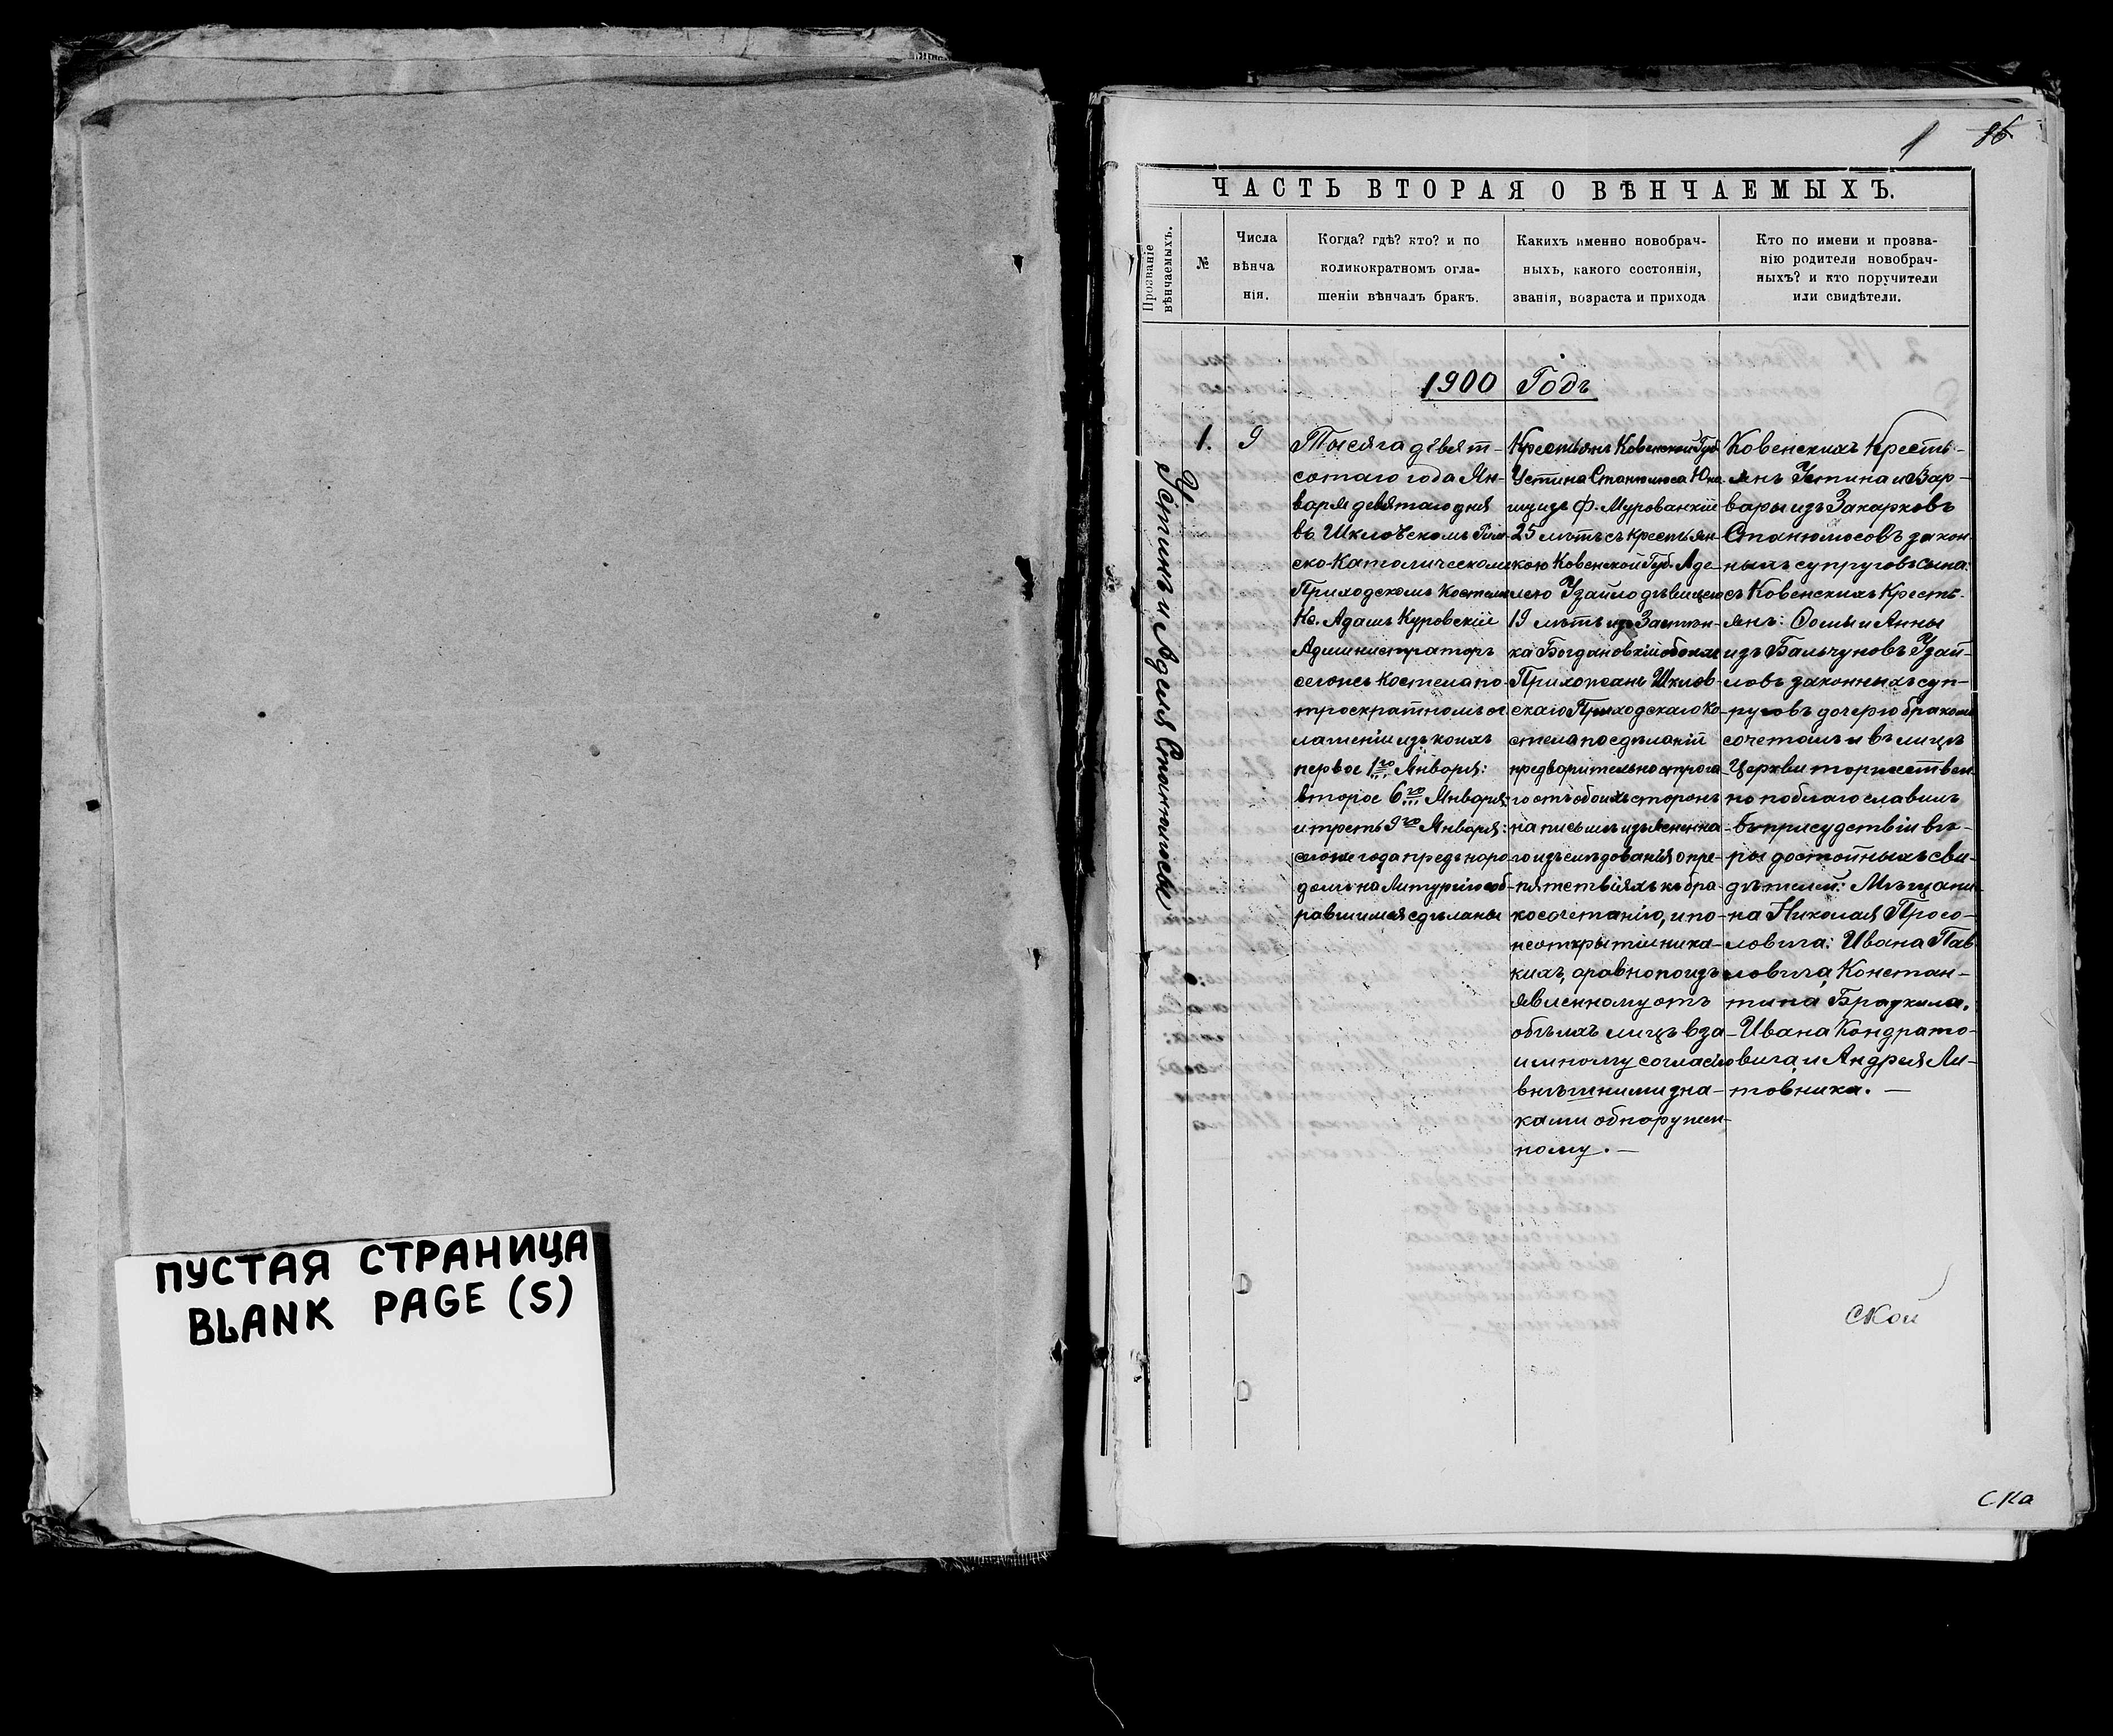 ПУСТАЯ СТРАНИЦА
BLANK PAGE (S)
1
ЧАСТЬ ВТОРАЯ О ВѢНЧАЕМЫХЪ.
Прозваніе
вѣнчаемыхъ.
№
Числа
вѣнча
нія.
Когда? гдѣ? кто? и по
коликократномъ огла-
шеніи вѣнчалъ бракъ.
Какихъ именно новобрач-
ныхъ, какого состоянія,
званія, возраста и прихода
Кто по имени и прозва-
нію родители новобрач-
ныхъ? и кто поручители
или свидѣтели.
1900 Годъ
Устинъ и Аделя Станюлюсы
1.
9
Тысяча девят-
сотаго года Ян-
варя девятаго дня
въ Шкловскомъ Рим-
ско-Католическомъ
Приходскомъ Костелѣ
Кс. Адамъ Куровскій
Администраторъ
сегожъ Костела по
троекратномъ ог-
лашеніи изъ коихъ
первое 1го Января:
второе 6го Января:
и третье 9го Января:
сегоже года предъ наро
домъ на Литургію соб-
равшимся сдѣланы
Крестьянъ Ковенской Губ.
Устина Станюлюса Юно-
шу изъ Ф. Мурованкій
25 лѣтъ съ крестьян-
кою Ковенской Губ. Аде-
лею Узайло дѣвицею
19 лѣтъ изъ Застѣн-
ка Богдановкій обоихъ
Прихожанъ Шклов-
скаго Приходскаго Ко-
стела по сдѣланій
предварительно строга
го отъ обоихъ сторонъ
на письмѣ изъясненна-
го изслѣдованія о пре-
пятствіяхъ къ бра-
косочетанію, и по
неоткрытіи ника-
кихъ, а равно по изъ
явленному отъ
обѣихъ лицъ вза-
имному согласію
внѣшними зна-
ками обнаружен-
ному. —
Ковенскихъ Кресть-
янъ Устина и Вар-
вары изъ Захарковъ
Станюлюсовъ закон
ныхъ супруговъ сына:
съ Ковенскихъ Кресть-
янъ: Ѳомы и Анны
изъ Бальчуновъ Узай-
ловъ законныхъ суп-
руговъ дочерю бракомъ
сочеталъ и въ лицѣ
Церкви торжествен
но поблагославилъ
въ присудствіи вѣ-
ры достойныхъ сви-
дѣтелей: Мѣщани-
на Николая Просо-
ловича: Ивана Пав
ловича, Констан-
тина
Ивана Кондрато-
вича, и Андрея Ли-
товника. —
ской
ска